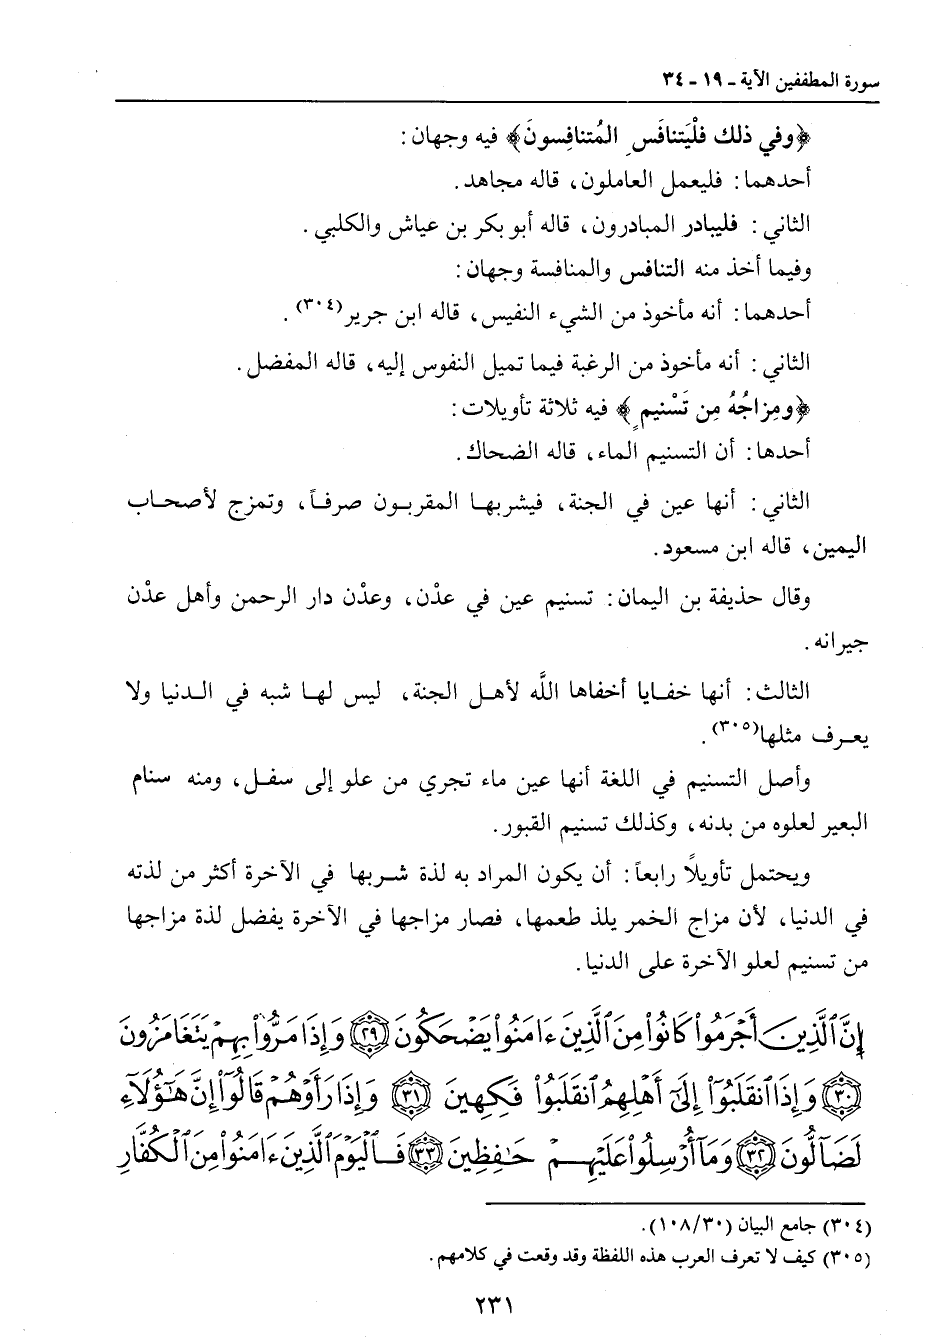 سورة المطففين الآية ـ ١٩ ـ ٣٤
﴿وفي ذلك فلْيَتنافَسِ المُتنافِسونَ﴾ فيه وجهان:
أحدهما: فليعمل العاملون، قاله مجاهد.
الثاني: فليبادر المبادرون، قاله أبو بكر بن عياش والكلبي.
وفيما أخذ منه التنافس والمنافسة وجهان:
أحدهما: أنه مأخوذ من الشيء النفيس، قاله ابن جرير(٣٠٤).
الثاني: أنه مأخوذ من الرغبة فيما تميل النفوس إليه، قاله المفضل.
﴿ومِزاجُهُ مِن تَسْنيمٍ﴾ فيه ثلاثة تأويلات:
أحدها: أن التسنيم الماء، قاله الضحاك.
الثاني: أنها عين في الجنة، فيشربها المقربون صرفاً، وتمزج لأصحاب
اليمين، قاله ابن مسعود.
وقال حذيفة بن اليمان: تسنيم عين في عدْن، وعدْن دار الرحمن وأهل عدْن
جيرانه.
الثالث: أنها خفايا أخفاها اللَّه لأهل الجنة، ليس لها شبه في الدنيا ولا
يعرف مثلها(٣٠٥).
وأصل التسنيم في اللغة أنها عين ماء تجري من علو إلى سفل، ومنه سنام
البعير لعلوه من بدنه، وكذلك تسنيم القبور.
ويحتمل تأويلاً رابعاً: أن يكون المراد به لذة شربها في الآخرة أكثر من لذته
في الدنيا، لأن مزاج الخمر يلذ طعمها، فصار مزاجها في الآخرة يفضل لذة مزاجها
من تسنيم لعلو الآخرة على الدنيا.
إِنَّ ٱلَّذِينَ أَجْرَمُوا۟ كَانُوا۟ مِنَ ٱلَّذِينَ ءَامَنُوا۟ يَضْحَكُونَ ٢٩ وَإِذَا مَرُّوا۟ بِهِمْ يَتَغَامَزُونَ
٣٠ وَإِذَا ٱنقَلَبُوٓا۟ إِلَىٰٓ أَهْلِهِمُ ٱنقَلَبُوا۟ فَكِهِينَ ٣١ وَإِذَا رَأَوْهُمْ قَالُوٓا۟ إِنَّ هَـٰٓؤُلَآءِ
لَضَآلُّونَ ٣٢ وَمَآ أُرْسِلُوا۟ عَلَيْهِمْ حَـٰفِظِينَ ٣٣ فَٱلْيَوْمَ ٱلَّذِينَ ءَامَنُوا۟ مِنَ ٱلْكُفَّارِ
(٣٠٤) جامع البيان (٣٠/١٠٨).
(٣٠٥) كيف لا تعرف العرب هذه اللفظة وقد وقعت في كلامهم.
٢٣١